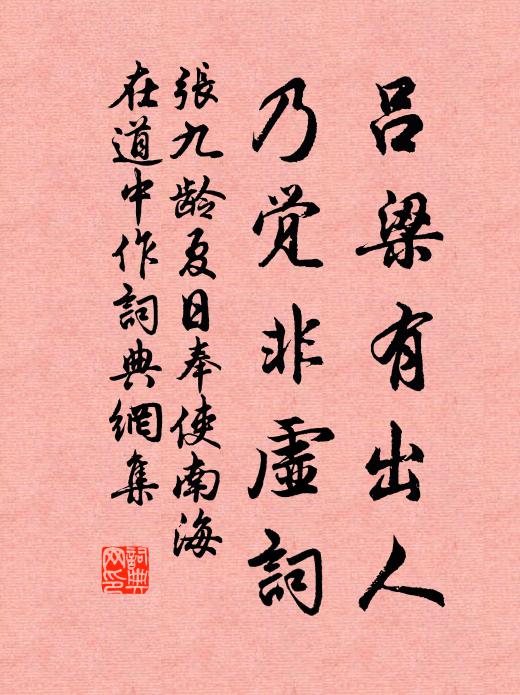 吕梁有出人
乃觉非虚詞
張九龄夏日奉使南海
在道中作詞典網集
詞典
网印